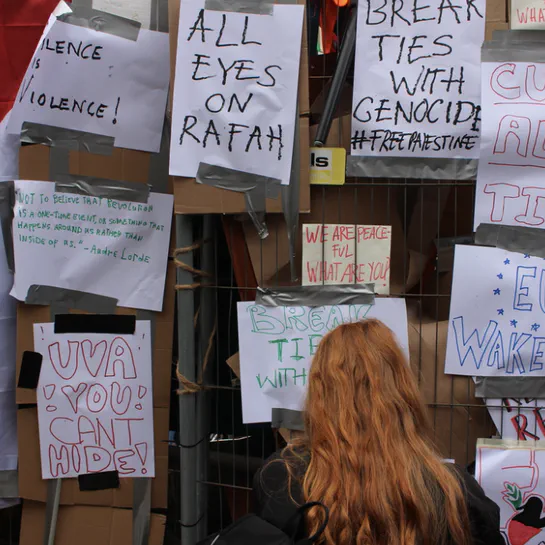 SILENCE
IS
VIOLENCE!
ALL
EYES
ON
RAFAH
BREAK
TIES
WITH
GENOCIDE
#FREEPALESTINE
WHA
CU
AL
TI
NOT TO BELIEVE THAT REVOLUTION
IS A ONE-TIME EVENT, OR SOMETHING THAT
HAPPENS AROUND US RATHER THAN
INSIDE OF US." - Audre Lorde
WE ARE PEACE-
FUL
WHAT ARE YOU?
BREAK
TIE
WITH
EU
WAKE
UVA
YOU
CANT
HIDE!